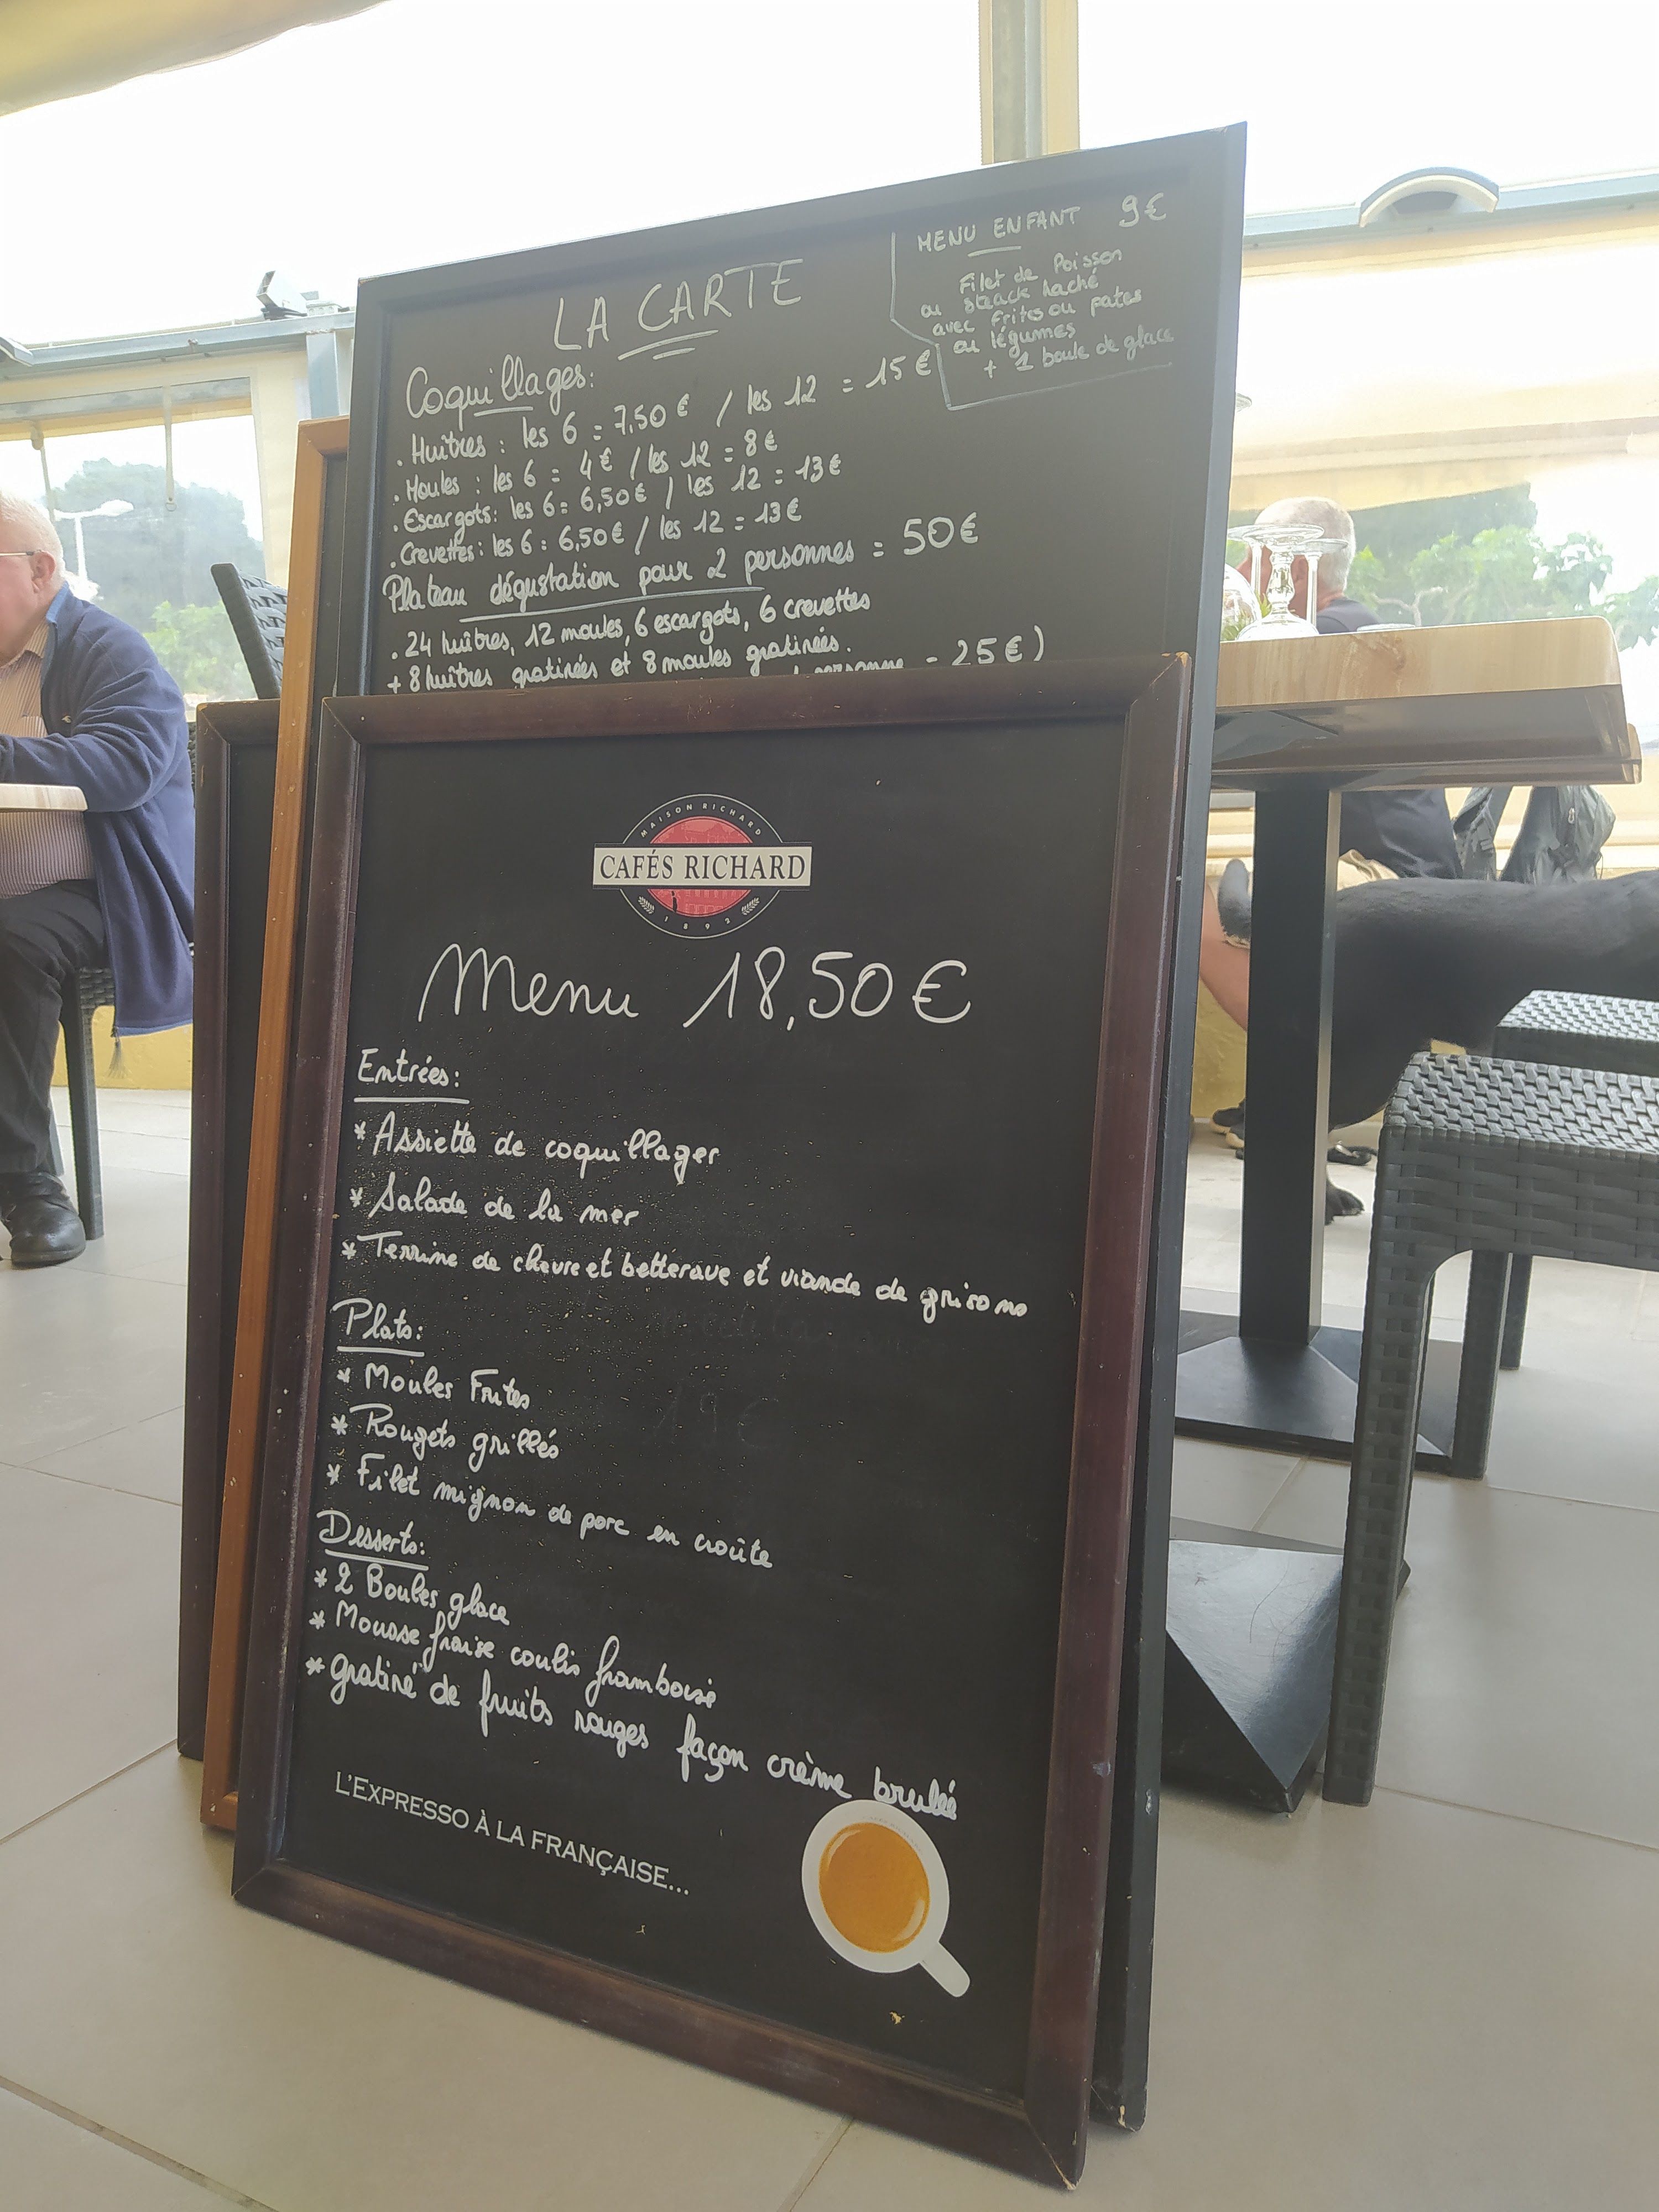 LA CARTE
MENU ENFANT 9€
Filet de Poisson
ou Steack haché
avec frites ou pates
ou légumes
+ 1 boule de glace
Coquillages:
. Huîtres : les 6 = 7,50 € / les 12 = 15 €
. Moules : les 6 = 4€ / les 12 = 8€
. Escargots: les 6 = 6,50€ / les 12 = 13€
. Crevettes: les 6 = 6,50€ / les 12 = 13€
Plateau dégustation pour 2 personnes = 50€
. 24 huîtres, 12 moules, 6 escargots, 6 crevettes
+ 8 huîtres gratinées et 8 moules gratinées.
personne = 25€)
MAISON RICHARD
CAFÉS RICHARD
1892
Menu 18,50€
Entrées:
* Assiette de coquillages
* Salade de la mer
* Terrine de chevre et betterave et viande de grisons
Plats:
* Moules Frites
* Rougets grillés
* Filet mignon de porc en croûte
Desserts:
* 2 Boules glace
* Mousse fraise coulis framboise
* gratiné de fruits rouges façon crème brulée
L'EXPRESSO À LA FRANÇAISE...